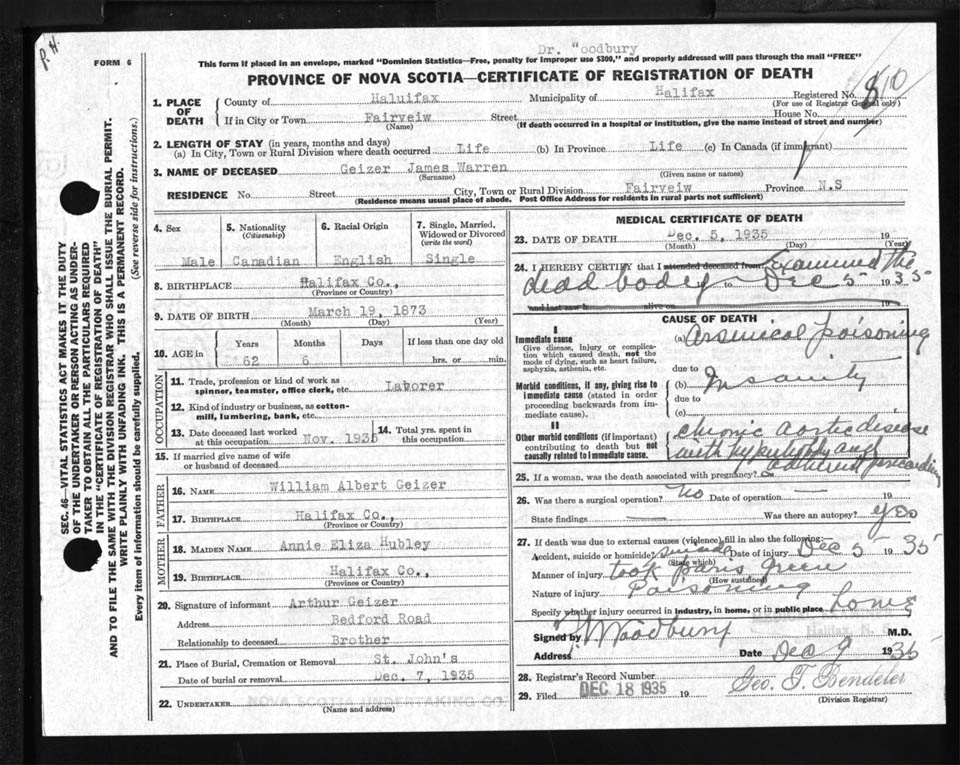 P. H.
Dr. Woodbury
FORM 6
This form if placed in an envelope, marked "Dominion Statistics—Free, penalty for improper use $300," and properly addressed will pass through the mail "FREE"
PROVINCE OF NOVA SCOTIA—CERTIFICATE OF REGISTRATION OF DEATH
SEC. 46—VITAL STATISTICS ACT MAKES IT THE DUTY
OF THE UNDERTAKER OR PERSON ACTING AS UNDER-
TAKER TO OBTAIN ALL THE PARTICULARS REQUIRED
IN THE "CERTIFICATE OF REGISTRATION OF DEATH"
AND TO FILE THE SAME WITH THE DIVISION REGISTRAR WHO SHALL ISSUE THE BURIAL PERMIT.
WRITE PLAINLY WITH UNFADING INK. THIS IS A PERMANENT RECORD.
Every item of information should be carefully supplied. (See reverse side for instructions.)
1. PLACE OF DEATH County of Haluifax Municipality of Halifax Registered No. 810
(For use of Registrar General only)
If in City or Town Fairveiw Street House No.
(Name) (If death occurred in a hospital or institution, give the name instead of street and number)
2. LENGTH OF STAY (in years, months and days)
(a) In City, Town or Rural Division where death occurred Life (b) In Province Life (c) In Canada (if immigrant)
3. NAME OF DECEASED Geizer James Warren
(Surname) (Given name or names)
RESIDENCE No. Street City, Town or Rural Division Fairveiw Province N.S
(Residence means usual place of abode. Post Office Address for residents in rural parts not sufficient)
4. Sex 5. Nationality (Citizenship) 6. Racial Origin 7. Single, Married, Widowed or Divorced (write the word)
Male Canadian English Single
8. BIRTHPLACE Halifax Co.,
(Province or Country)
9. DATE OF BIRTH March 19, 1873
(Month) (Day) (Year)
10. AGE in Years Months Days If less than one day old
62 6 hrs. or min.
OCCUPATION
11. Trade, profession or kind of work as spinner, teamster, office clerk, etc. Laborer
12. Kind of industry or business, as cotton-mill, lumbering, bank, etc.
13. Date deceased last worked at this occupation Nov. 1935 14. Total yrs. spent in this occupation
15. If married give name of wife or husband of deceased
FATHER
16. NAME William Albert Geizer
17. BIRTHPLACE Halifax Co.,
(Province or Country)
MOTHER
18. MAIDEN NAME Annie Eliza Hubley
19. BIRTHPLACE Halifax Co.,
(Province or Country)
20. Signature of informant Arthur Geizer
Address Bedford Road
Relationship to deceased Brother
21. Place of Burial, Cremation or Removal St. John's
Date of burial or removal Dec. 7, 1935
22. UNDERTAKER NOVA SCOTIA UNDERTAKING CO
(Name and address)
MEDICAL CERTIFICATE OF DEATH
23. DATE OF DEATH Dec. 5, 1935 19
(Month) (Day) (Year)
24. I HEREBY CERTIFY that I attended deceased from Examined the
dead body to Dec 5 1935
and last saw h alive on 19
CAUSE OF DEATH
I
Immediate cause
Give disease, injury or complication which caused death, not the mode of dying, such as heart failure, asphyxia, asthenia, etc.
(a) Arsenical poisoning
due to
Morbid conditions, if any, giving rise to immediate cause (stated in order proceeding backwards from immediate cause).
(b) Insanity
due to
(c)
II
Other morbid conditions (if important) contributing to death but not causally related to immediate cause.
chronic aortic disease
with hypertrophy and
adherent pericardium
25. If a woman, was the death associated with pregnancy?
26. Was there a surgical operation? no Date of operation — 19
State findings — Was there an autopsy? yes
27. If death was due to external causes (violence) fill in also the following:—
Accident, suicide or homicide? suicide Date of injury Dec 5 1935
(State which)
Manner of injury took paris green
(How sustained)
Nature of injury Poisoning
Specify whether injury occurred in industry, in home, or in public place home
Halifax, N. S.
Signed by Woodbury M.D.
Address Date Dec 9 1935
28. Registrar's Record Number
29. Filed DEC 18 1935 19 Geo. T. Bendelier
(Division Registrar)